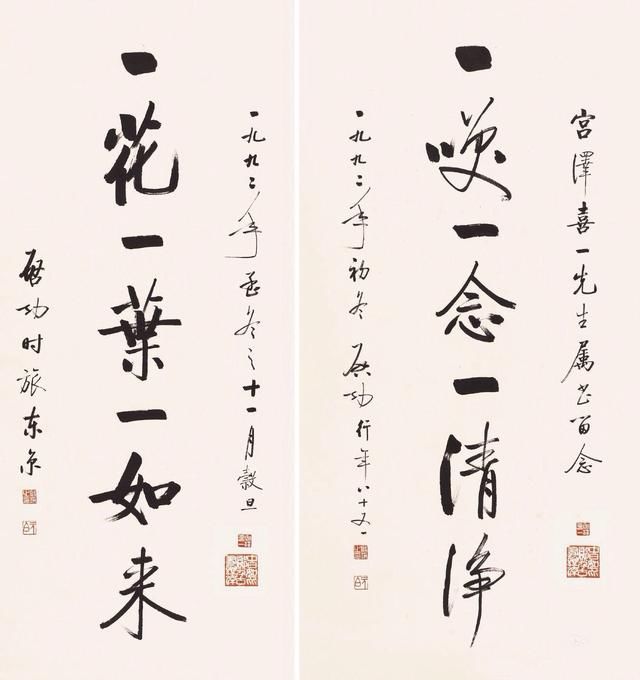 宫澤喜一先生属书留念
一咲一念一清净
一九九二年初冬 启功行年八十又一
一九九二年孟冬之十一月穀旦
一花一葉一如来
启功时旅东京